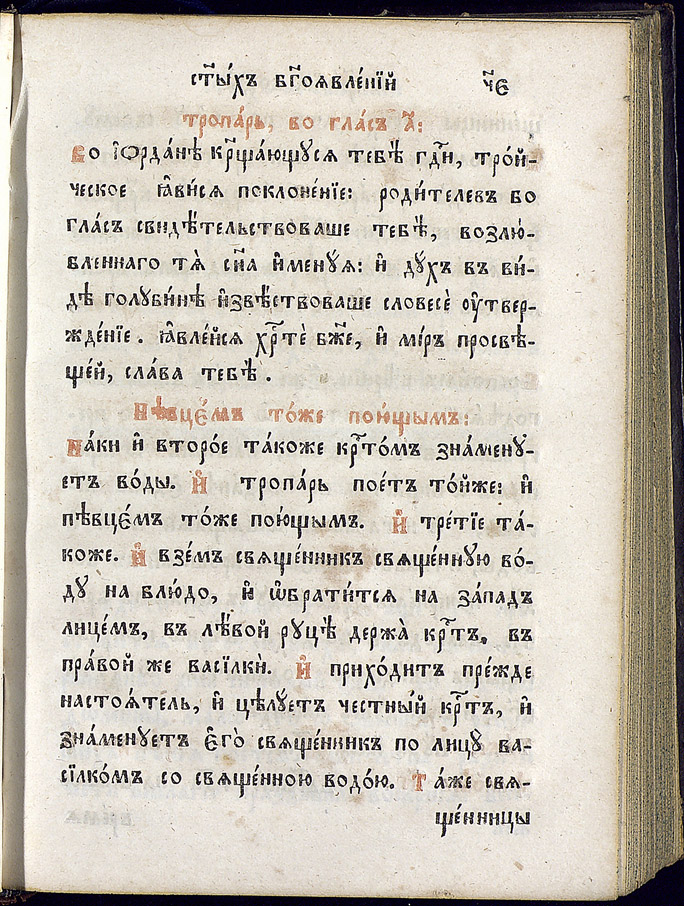 ст҃ы́хъ бг҃оявле́нїй чє҃
тропа́рь, во гла́съ а҃:
Во І҆ѻрда́нѣ кр҃ща́ющꙋся тебѣ̀ гд҃и, тро́й-
ческое ꙗ҆ви́ся поклоне́нїе: роди́телевъ бо
гла́съ свидѣ́тельствоваше тебѣ̀, возлю́-
бленнаго тѧ̀ сн҃а и҆менꙋя: и҆ дꙋ́хъ въ ви́-
дѣ голꙋби́нѣ и҆звѣ́ствоваше словесѐ ᲂу҆твер-
жде́нїе. ꙗ҆вле́йся хрⷭ҇тѐ бж҃е, и҆ мі́ръ просвѣ-
ще́й, сла́ва тебѣ̀.
Пѣвце́мъ то́же пою́щымъ:
Па́ки и҆ второ́е та́коже крⷭ҇то́мъ зна́менꙋ-
етъ во́ды. И҆ тропа́рь пое́тъ то́йже: и҆
пѣвцє́мъ то́же пою́щымъ. И҆ тре́тїе та́-
коже. И҆ взе́мъ свяще́нникъ свяще́ннꙋю во́-
дꙋ на блю́до, и҆ ѡ҆брати́тся на за́падъ
лице́мъ, въ лѣ́вой рꙋцѣ̀ держа̀ крⷭ҇тъ. въ
пра́вой же васі́лкѝ. И҆ прихо́дитъ пре́жде
настоя́тель, и҆ цѣлꙋ́етъ честны́й крⷭ҇тъ, и҆
зна́менꙋетъ є҆го̀ свяще́нникъ по лицꙋ̀ ва-
сілко́мъ со свяще́нною водо́ю. Та́же свя-
ще́нницы